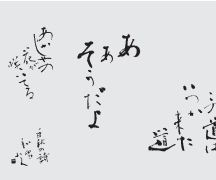 この道は
いつか来た
道
あ
あ
そうだよ
あかしやの
花が
咲いてる
白秋の詩